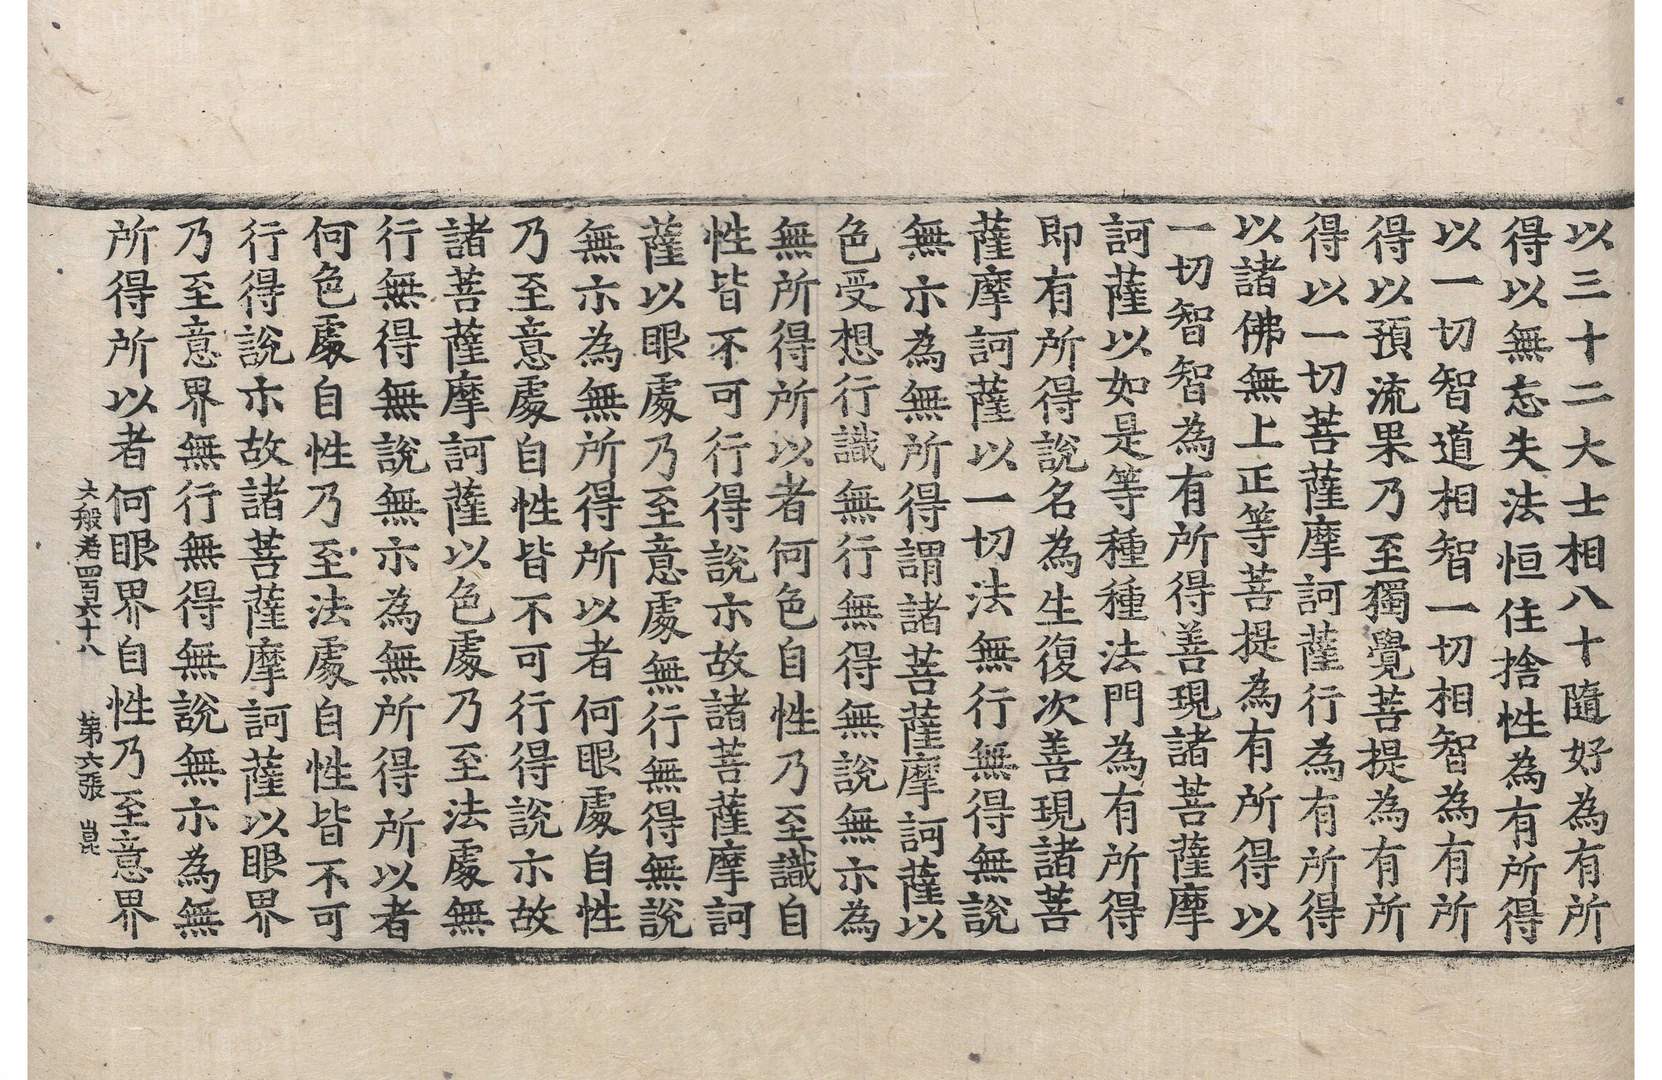 以三十二大士相八十隨好為有所
得以無忘失法恒住捨性為有所得
以一切智道相智一切相智為有所
得以預流果乃至獨覺菩提為有所
得以一切菩薩摩訶薩行為有所得
以諸佛無上正等菩提為有所得以
一切智智為有所得善現諸菩薩摩
訶薩以如是等種種法門為有所得
即有所得說名為生復次善現諸菩
薩摩訶薩以一切法無行無得無說
無亦為無所得謂諸菩薩摩訶薩以
色受想行識無行無得無說無亦為
無所得所以者何色自性乃至識自
性皆不可行得說亦故諸菩薩摩訶
薩以眼處乃至意處無行無得無說
無亦為無所得所以者何眼處自性
乃至意處自性皆不可行得說亦故
諸菩薩摩訶薩以色處乃至法處無
行無得無說無亦為無所得所以者
何色處自性乃至法處自性皆不可
行得說亦故諸菩薩摩訶薩以眼界
乃至意界無行無得無說無亦為無
所得所以者何眼界自性乃至意界
大般若四百六十八 第六張 崑